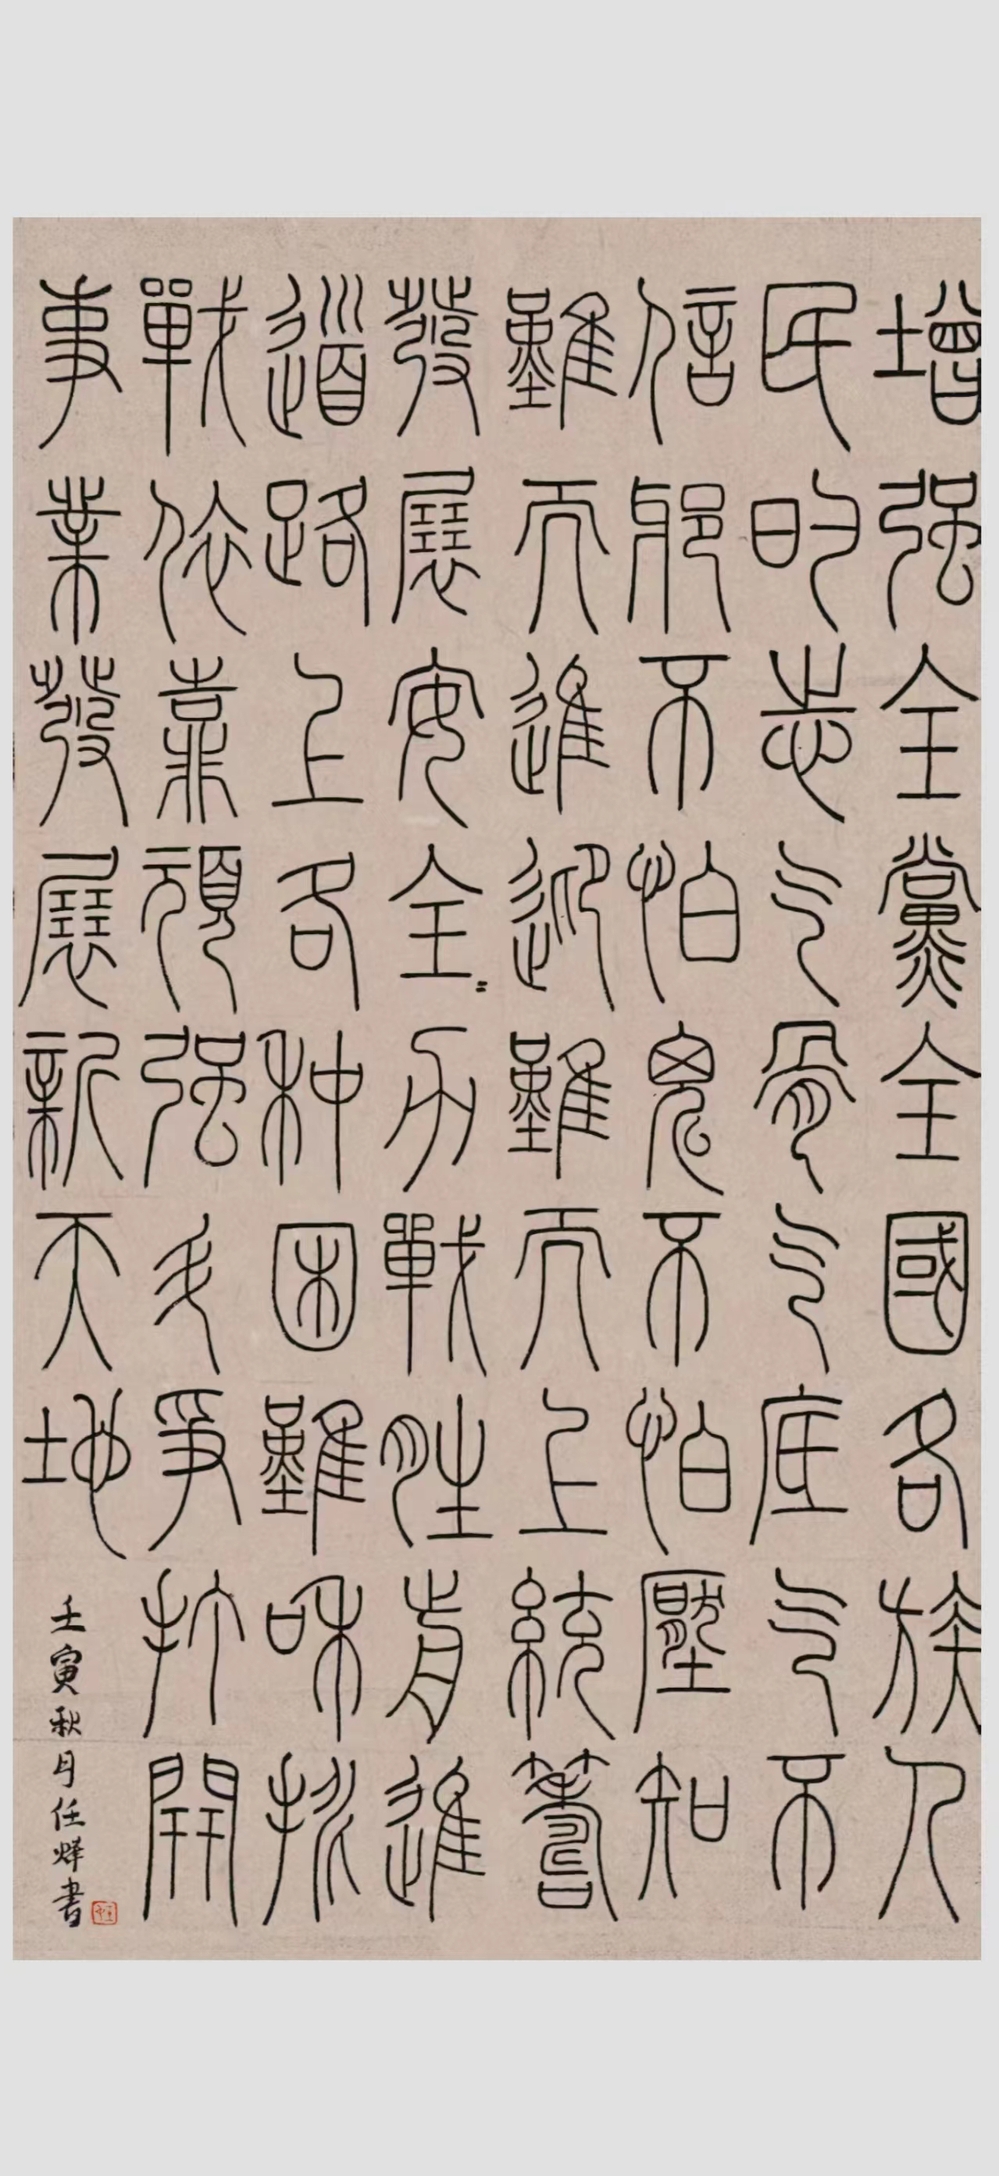 增强全黨全國各族人
民的志气骨气底气不
信邪不怕鬼不怕壓知
難而進迎難而上統籌
發展安全〻力戰勝前進
道路上各种困難和挑
戰依靠頑强斗爭打開
事業發展新天地
壬寅秋月任烽書